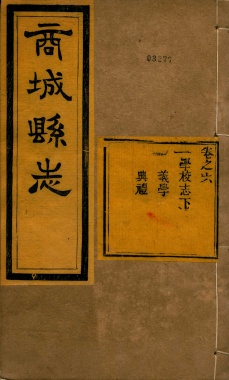 03877
商城縣志
卷之六
一學校志下
義學
一典禮